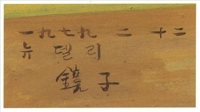 一九七九 二 十二
뉴델리
鏡子